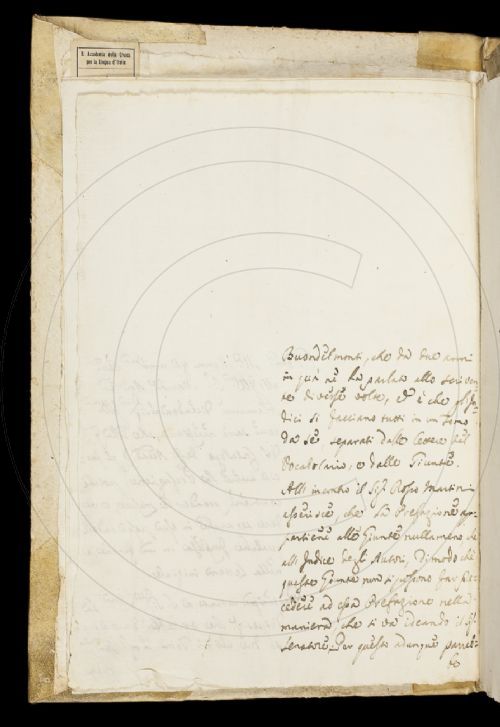 R. Accademia della Crusca
per la Lingua d'Italia
Buondelmonti, che da due anni
in quà ne ha parlato allo scriven
te diverse volte, ed è che gl'In-
dici si facciano tutti in un Tomo
da se, separati dalle Lettere del
Vocabolario, e dalle Giunte.
All'incontro il Sig.r Rosso Martini
asserisce, che la Prefazione ap-
partiene alle Giunte nullameno che
all'Indice degli Autori, dimodochè
queste Giunte non si possono far pre
cedere ad essa Prefazione nella
maniera che si va ideando il Sig.r
Senatore. Per questo adunque parreb-
be